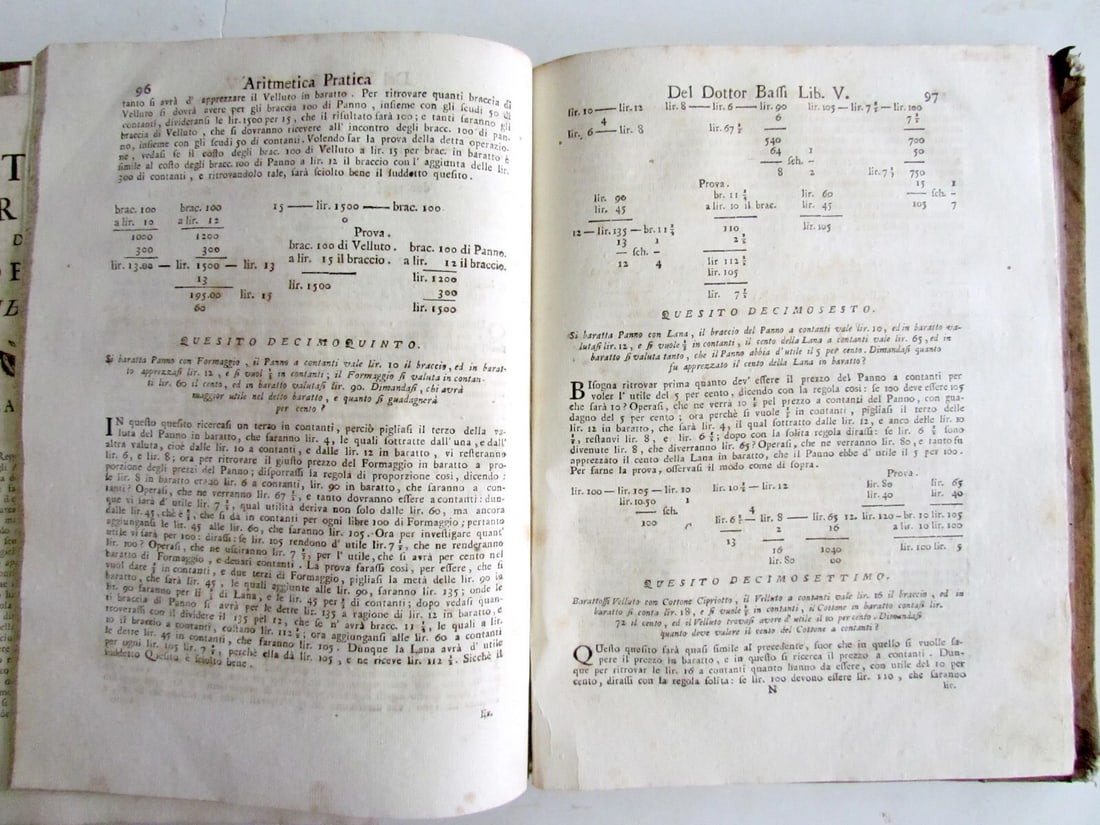 96 Aritmetica Pratica
tanto si avrà d' apprezzare il Velluto in baratto. Per ritrovare quanti braccia di
Velluto si dovrà avere per gli braccia 100 di Panno, insieme con gli scudi 50 di
contanti, divideransi le lir.1500 per 15, che il risultato sarà 100; e tanti saranno gli
braccia di Velluto, che si dovranno ricevere all' incontro degli bracc. 100 di pan-
no, insieme con gli scudi 50 di contanti. Volendo far la prova della detta operazio-
ne, vedasi se il costo degli brac. 100 di Velluto a lir. 15 per brac. in baratto è
simile al costo degli bracc. 100 di Panno a lir. 12 il braccio con l' aggiunta delle lir.
300 di contanti, e ritrovandolo tale, sarà sciolto bene il suddetto quesito.
brac. 100 brac. 100 15 — lir. 1500 — brac. 100
a lir. 10 a lir. 12 0
1000 1200 Prova.
300 300 brac. 100 di Velluto. brac. 100 di Panno.
lir. 13.00 — lir. 1500 — lir. 13 a lir. 15 il braccio. a lir. 12 il braccio.
13 lir. 1500 lir. 1200
195.00 lir. 15 300
60 lir. 1500
QUESITO DECIMOQUINTO.
Si baratta Panno con Formaggio, il Panno a contanti vale lir. 10 il braccio, ed in barat-
to apprezzasi lir. 12, e si vuol ⅓ in contanti; il Formaggio si valuta in contan-
ti lir. 60 il cento, ed in baratto valutasi lir. 90. Dimandasi, chi avrà
maggior utile nel detto baratto, e quanto si guadagnerà
per cento?
IN questo quesito ricercasi un terzo in contanti, perciò pigliasi il terzo della va-
luta del Panno in baratto, che saranno lir. 4, le quali sottratte dall' una, e dall'
altra valuta, cioè dalle lir. 10 a contanti, e dalle lir. 12 in baratto, vi resteranno
lir. 6, e lir. 8; ora per ritrovare il giusto prezzo del Formaggio in baratto a pro-
porzione degli prezzi del Panno; disporrassi la regola di proporzione così, dicendo:
se lir. 8 in baratto erano lir. 6 a contanti, lir. 90 in baratto, che saranno a con-
tanti? Operasi, che ne verranno lir. 67 ½, e tanto dovranno essere a contanti: dun-
que vi sarà d' utile lir. 7 ½, qual utilità deriva non solo dalle lir. 60, ma ancora
dalle lir. 45, che è ⅓, che si dà in contanti per ogni libre 100 di Formaggio; pertanto
aggiungansi le lir. 45 alle lir. 60, che faranno lir. 105. Ora per investigare quant'
utile vi sarà per 100: dirassi: se lir. 105 rendono d' utile lir. 7 ½, che ne renderanno
lir. 100? Operasi, che ne usciranno lir. 7 ⅐, per l' utile, che si avrà per cento nel
baratto di Formaggio, e denari contanti. La prova farassi così, per essere, che si
vuol dare ⅓ in contanti, e due terzi di Formaggio, pigliasi la metà delle lir. 90 in
baratto, che sarà lir. 45, le quali aggiunte alle lir. 90, saranno lir. 135; onde le
lir. 90 saranno per li ⅔ di Lana, e le lir. 45 per ⅓ di contanti; dopo vedasi quan-
ti braccia di Panno si avrà per le dette lir. 135 a ragione di lir. 12 in baratto, e
troverassi con il dividere il 135 pel 12, che se n' avrà bracc. 11 ¼, le quali a lir.
10 il braccio a contanti, costano lir. 112 ½; ora aggiungansi alle lir. 60 a contanti
le dette lir. 45 in contanti, che saranno lir. 105. Dunque la Lana avrà d' utile
per ogni lir. 105 lir. 7 ½, perchè ella dà lir. 105, e ne riceve lir. 112 ½. Sicchè il
suddetto Quesito è sciolto bene.
lir.
Del Dottor Bassi Lib. V. 97
lir. 10 — lir. 12 lir. 8 — lir. 6 — lir. 90 lir. 105 — lir. 7 ½ — lir. 100
4 6 7 ½
lir. 6 — lir. 8 lir. 67 ½ 540 700
64 1 50
— sch. –
8 2 lir. 7 ⅐ 750
Prova. 15 1
lir. 90 br. 11 ¼ lir. 60 — sch. –
lir. 45 a lir. 10 il brac. lir. 45 105 7
12 — lir. 135 — br. 11 ¼ 110 lir. 105
13 1 2 ½
— sch. –
12 4 lir 112 ½
lir. 105
lir. 7 ½
QUESITO DECIMOSESTO.
Si baratta Panno con Lana, il braccio del Panno a contanti vale lir. 10, ed in baratto va-
lutasi lir. 12, e si vuole ⅓ in contanti, il cento della Lana a contanti vale lir. 65, ed in
baratto si valuta tanto, che il Panno abbia d'utile il 5 per cento. Dimandasi quanto
fu apprezzato il cento della Lana in baratto?
BIsogna ritrovar prima quanto dev' essere il prezzo del Panno a contanti per
voler l' utile del 5 per cento, dicendo con la regola così: se 100 deve essere 105
che sarà 10? Operasi, che ne verrà 10 ½ pel prezzo a contanti del Panno, con gua-
dagno del 5 per cento; ora perchè si vuole ⅓ in contanti, pigliasi il terzo delle
lir. 12 in baratto, che sarà lir. 4, il qual sottratto dalle lir. 12, e anco delle lir. 10
½, restanvi lir. 8, e lir. 6 ½; dopo con la solita regola dirassi: se lir. 6 ½ sono
divenute lir. 8, che diverranno lir. 65? Operasi, che ne verranno lir. 80, e tanto fu
apprezzato il cento della Lana in baratto, che il Panno ebbe d' utile il 5 per 100.
Per farne la prova, osservasi il modo come di sopra.
Prova.
lir. 100 — lir. 105 — lir. 10 lir. 10 ½ — lir. 12 lir. 80 lir. 65
lir. 10.50 1 4 lir. 40 lir. 40
— sch.
100 2 lir. 6 ½ — lir. 8 — lir. 65 12. lir. 120 — br. 10 lir. 105
2 16 a lir. 10 lir. 100
13
16 1040 lir. 100 lir. 5
lir. 80 00
QUESITO DECIMOSETTIMO.
Barattossi Velluto con Cottone Cipriotto, il Velluto a contanti vale lir. 16 il braccio, ed in
baratto si conta lir. 18, e si vuole ⅓ in contanti, il Cottone in baratto contasi lir.
72 il cento, ed il Velluto trovasi avere d' utile il 10 per cento. Dimandasi
quanto deve valere il cento del Cottone a contanti?
QUesto quesito sarà quasi simile al precedente, fuor che in quello si vuolle sa-
pere il prezzo in baratto, e in questo si ricerca il prezzo a contanti. Dun-
que per ritrovar le lir. 16 a contanti quanto hanno da essere, con utile del 10 per
cento, dirassi con la regola solita: se lir. 100 devono essere lir. 110, che saranno
N lir.